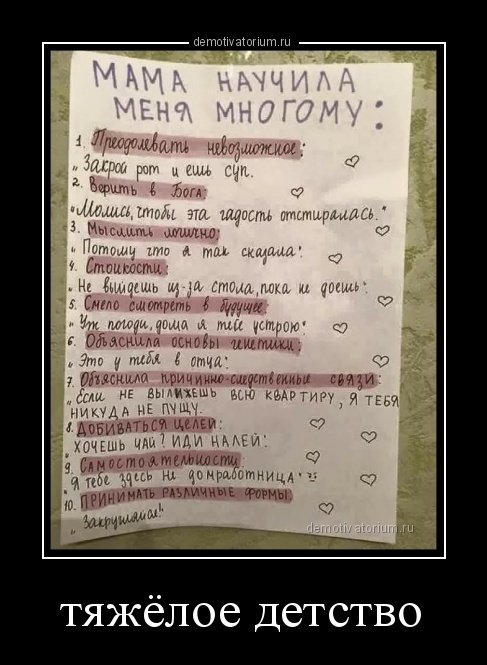 demotivatorium.ru
МАМА НАУЧИЛА
МЕНЯ МНОГОМУ:
1. Преодолевать невозможное:
„Закрой рот и ешь суп.
2. Верить в Бога:
"Молись, чтобы эта гадость отстиралась."
3. Мыслить логично:
„Потому что я так сказала":
4. Стойкости:
„Не выйдешь из-за стола, пока не доешь":
5. Смело смотреть в будущее:
„Уж погоди, дома я тебе устрою":
6. Объяснила основы генетики:
„Это у тебя в отца":
7. Объяснила причинно-следственные связи:
„Если не вылижешь всю квартиру, я тебя
никуда не пущу.
8. Добиваться целей:
„Хочешь чай? Иди налей":
9. Самостоятельности
"Я тебе здесь не домработница"
10. Принимать различные формы:
„Закругляйся!"
demotivatorium.ru
тяжёлое детство